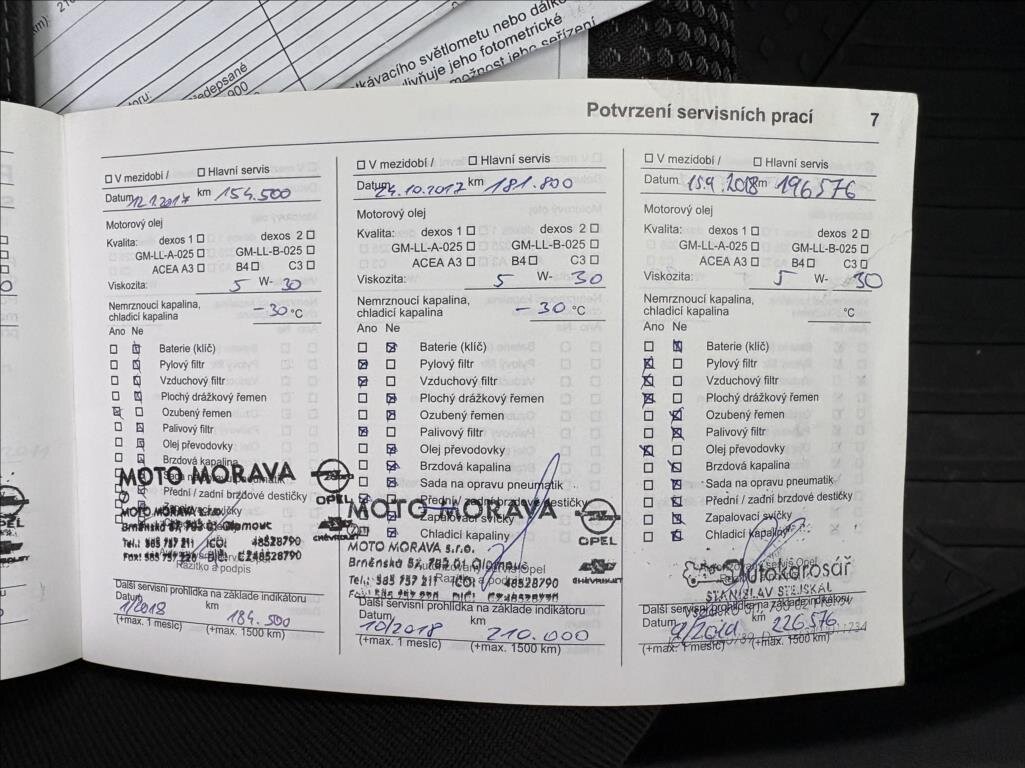 odkávacího světlometu nebo dálko
livňuje jeho fotometrické
možnost jeho seřízení
Potvrzení servisních prací 7
☐ V mezidobí / ☐ Hlavní servis
Datum 12.1.2017 km 154.500
Motorový olej
Kvalita: dexos 1 ☐ dexos 2 ☐
GM-LL-A-025 ☐ GM-LL-B-025 ☐
ACEA A3 ☐ B4 ☐ C3 ☐
Viskozita: 5 W- 30
Nemrznoucí kapalina,
chladicí kapalina -30 °C
Ano Ne
Baterie (klíč)
Pylový filtr
Vzduchový filtr
Plochý drážkový řemen
Ozubený řemen
Palivový filtr
Olej převodovky
Brzdová kapalina
Sada na opravu pneumatik
Přední / zadní brzdové destičky
MOTO MORAVA
OPEL
MOTO MORAVA s.r.o.
Brněnská 57, 783 01 Olomouc
Tel.: 585 757 211 IČO: 48528790
Fax: 585 757 220 DIČ: CZ48528790
CHEVROLET
Razítko a podpis
Další servisní prohlídka na základě indikátoru
Datum 1/2018 km 184.500
(+max. 1 měsíc) (+max. 1500 km)
☐ V mezidobí / ☐ Hlavní servis
Datum 24.10.2017 km 181.800
Motorový olej
Kvalita: dexos 1 ☐ dexos 2 ☐
GM-LL-A-025 ☐ GM-LL-B-025 ☐
ACEA A3 ☐ B4 ☐ C3 ☐
Viskozita: 5 W- 30
Nemrznoucí kapalina,
chladicí kapalina -30 °C
Ano Ne
Baterie (klíč)
Pylový filtr
Vzduchový filtr
Plochý drážkový řemen
Ozubený řemen
Palivový filtr
Olej převodovky
Brzdová kapalina
Sada na opravu pneumatik
Přední / zadní brzdové destičky
Zapalovací svíčky
Chladicí kapaliny
MOTO MORAVA
OPEL
MOTO MORAVA s.r.o.
Brněnská 57, 783 01 Olomouc
Tel.: 585 757 211 IČO: 48528790
CHEVROLET
Razítko a podpis
Další servisní prohlídka na základě indikátoru
Datum 10/2018 km 210.000
(+max. 1 měsíc) (+max. 1500 km)
☐ V mezidobí / ☐ Hlavní servis
Datum 15.9.2018 km 196576
Motorový olej
Kvalita: dexos 1 ☐ dexos 2 ☐
GM-LL-A-025 ☐ GM-LL-B-025 ☐
ACEA A3 ☐ B4 ☐ C3 ☐
Viskozita: 5 W- 30
Nemrznoucí kapalina,
chladicí kapalina °C
Ano Ne
Baterie (klíč)
Pylový filtr
Vzduchový filtr
Plochý drážkový řemen
Ozubený řemen
Palivový filtr
Olej převodovky
Brzdová kapalina
Sada na opravu pneumatik
Přední / zadní brzdové destičky
Zapalovací svíčky
Chladicí kapaliny
Autokarosář
STANISLAV STEJSKAL
Další servisní prohlídka na základě indikátoru
Datum km 226576
(+max. 1 měsíc) (+max. 1500 km)